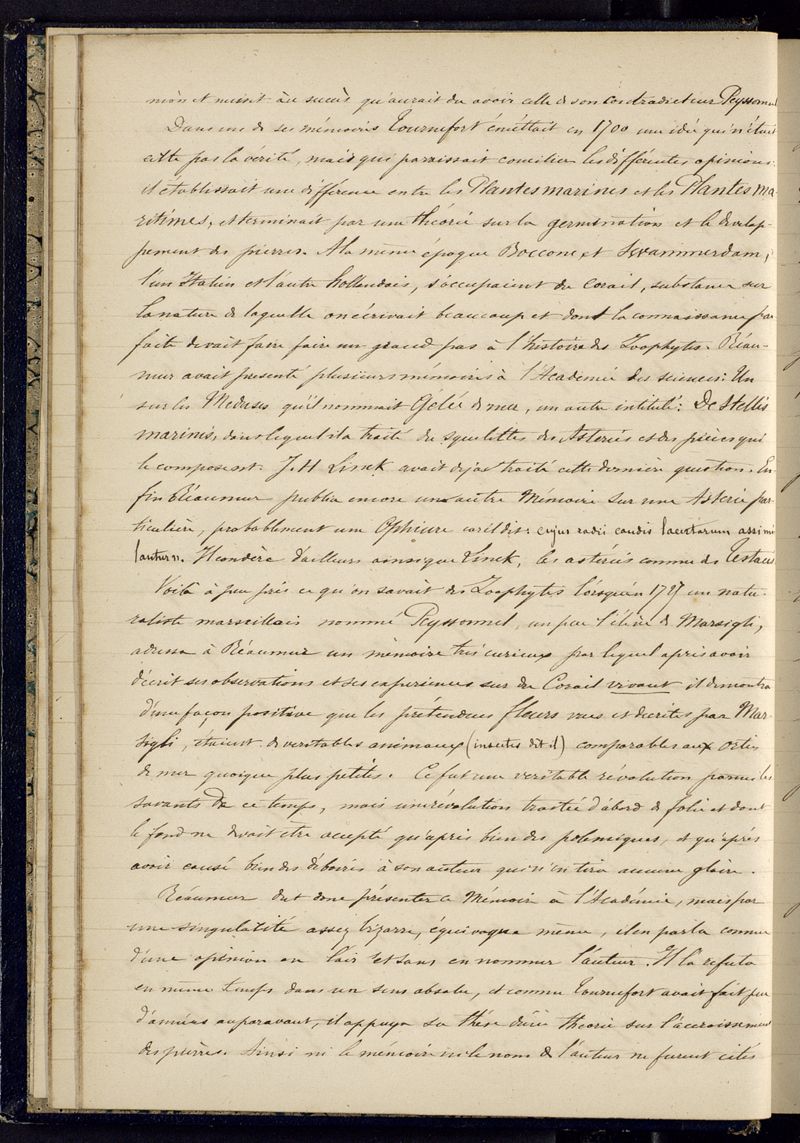 nion et nuisit au succès qu'aurait du avoir celle de son contradicteur Peyssonnel
Dans une de ses mémoires Tournefort émettait en 1700 une idée qui n'était
cette pas la vérité, mais qui paraissait concilier les différentes opinions.
il établissait une différence entre les Plantes marines et les Plantes ma-
ritimes, et terminait par une théorie sur la germination et le dévelop-
pement des pierres. A la même époque Boccone et Swammerdam,
l'un Italien et l'autre hollandais, s'occupaient du Corail, substance sur
la nature de laquelle on écrivait beaucoup et dont la connaissance par-
faite devait faire faire un grand pas à l'histoire des Zoophytes. Réau-
mur avait présenté plusieurs mémoires à l'Académie des sciences: Un
sur les Meduses qu'il nommait Gelée de mer, un autre intitulé: De Stellis
marinis, dans lequel il a traité du squelette des Asteries et des pièces qui
le composent. J. H Linck avait déjà traité cette dernière question. En-
fin Réaumur publia encore un autre Mémoire sur une Asterie par-
ticulière, probablement une Ophiure car il dit: cujus radii caudis lacertarum assimi
lantur. Il considère d'ailleurs ainsi que Linck, les astéries comme des Testacés
Voilà à peu près ce qu'on savait des Zoophytes lorsqu'en 1727 un natu-
raliste marseillais nommé Peyssonnel, un peu l'élève de Marsigli,
adressa à Réaumur un mémoire très curieux par lequel après avoir
décrit ses observations et ses expériences sur du Corail vivant il démontra
d'une façon positive que les prétendues fleurs vues et décrites par Mar-
sigli, étaient de veritables animaux (insectes dit il) comparables aux orties
de mer quoique plus petites. Ce fut une veritable révolution parmi les
savants de ce temps, mais une révolution traitée d'abord de folie et dont
le fond ne devait être accepté qu'après bien des polemiques, et qu'après
avoir causé bien des déboires à son auteur qui n'en tira aucune gloire.
Réaumur dut donc présenter ce Mémoire à l'Académie, mais par
une singularité assez bizarre, équivoque même, il en parla comme
d'une opinion en l'air et sans en nommer l'auteur. Il la refuta
en même temps dans un sens absolu, et comme Tournefort avait fait peu
d'années auparavant, il appuya sa thèse d'une theorie sur l'accroissement
des pierres. Ainsi ni le mémoire ni le nom de l'auteur ne furent cités